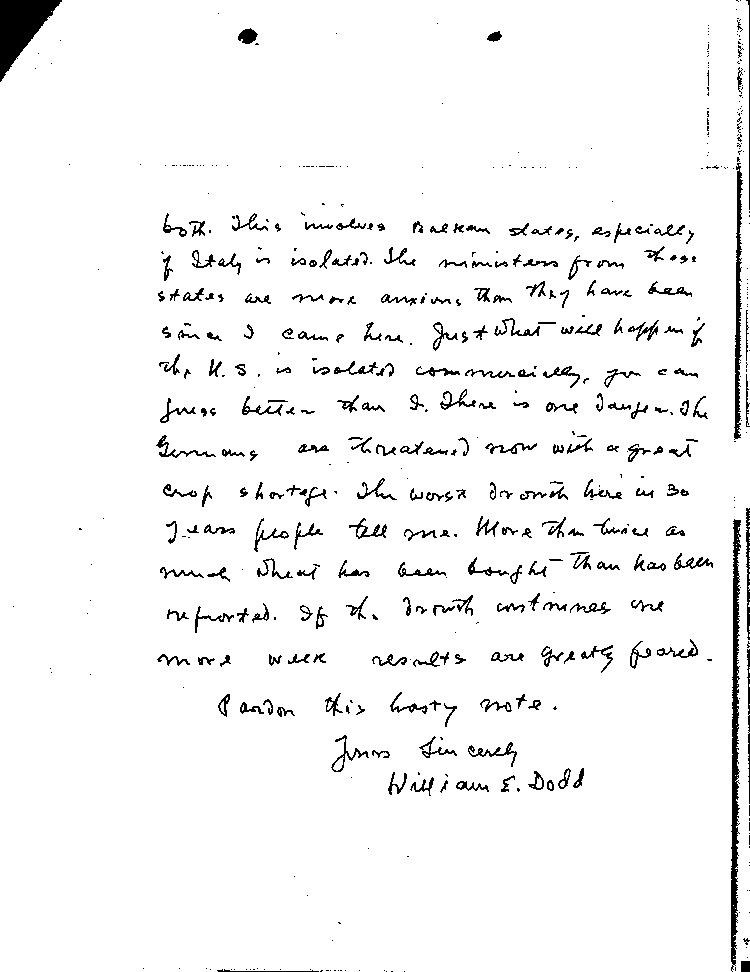 both. This involves Balkan states, especially
if Italy is isolated. The ministers from these
states are more anxious than they have been
since I came here. Just what will happen if
the U.S. is isolated commercially, you can
guess better than I. There is one danger. The
Germans are threatened now with a great
crop shortage. The worst drouth here in 30
years people tell me. More than twice as
much wheat has been bought than has been
reported. If the drouth continues one
more week results are greatly feared.
Pardon this hasty note.
Yours Sincerely
William E. Dodd